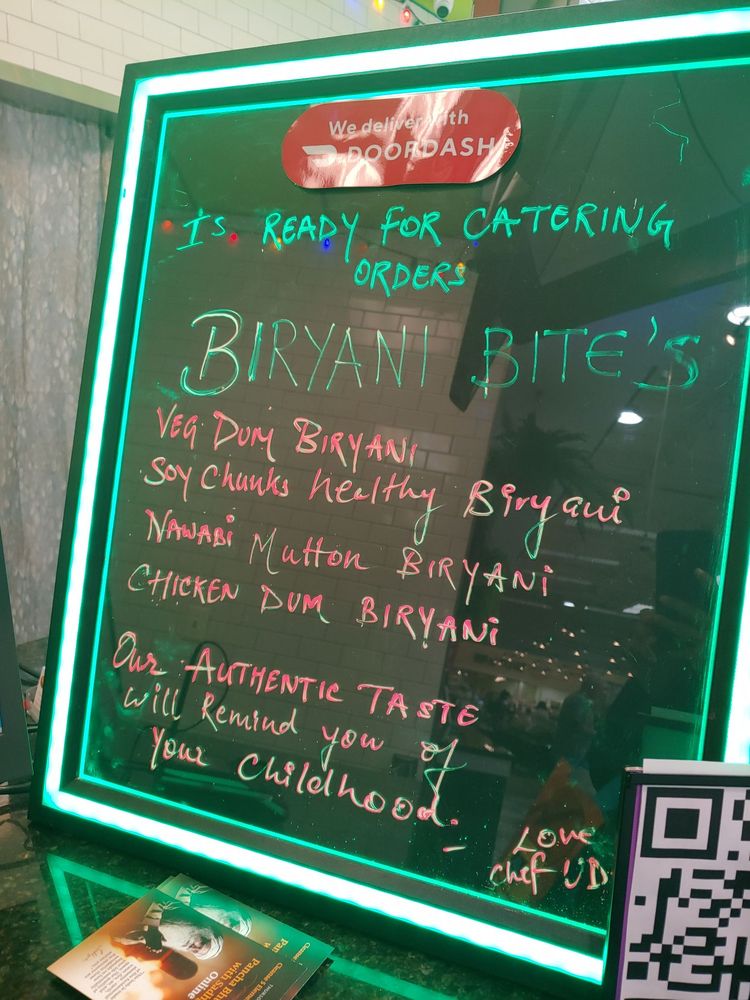 We deliver with
DOORDASH
IS READY FOR CATERING
ORDERS
BIRYANI BITE'S
VEG DUM BIRYANI
Soy Chunks healthy Biryani
NAWABI Mutton BIRYANI
CHICKEN DUM BIRYANI
Our AUTHENTIC TASTE
will Remind you of
Your Childhood.
- Love
Chef UD
Pancha
with Sadh
Online